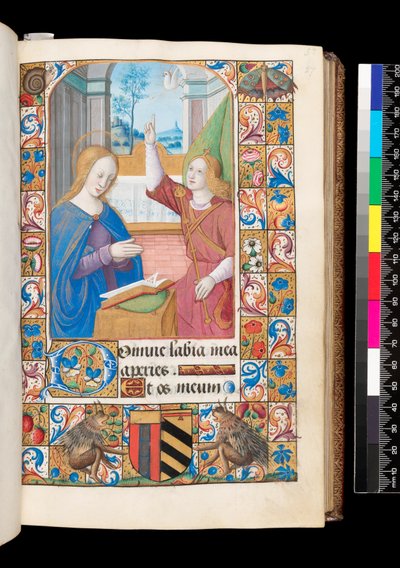 Domine labia mea
aperies.
Et os meum
mm 10 20 30 40 50 60 70 80 90 100 110 120 130 140 150 160 170 180 190 200